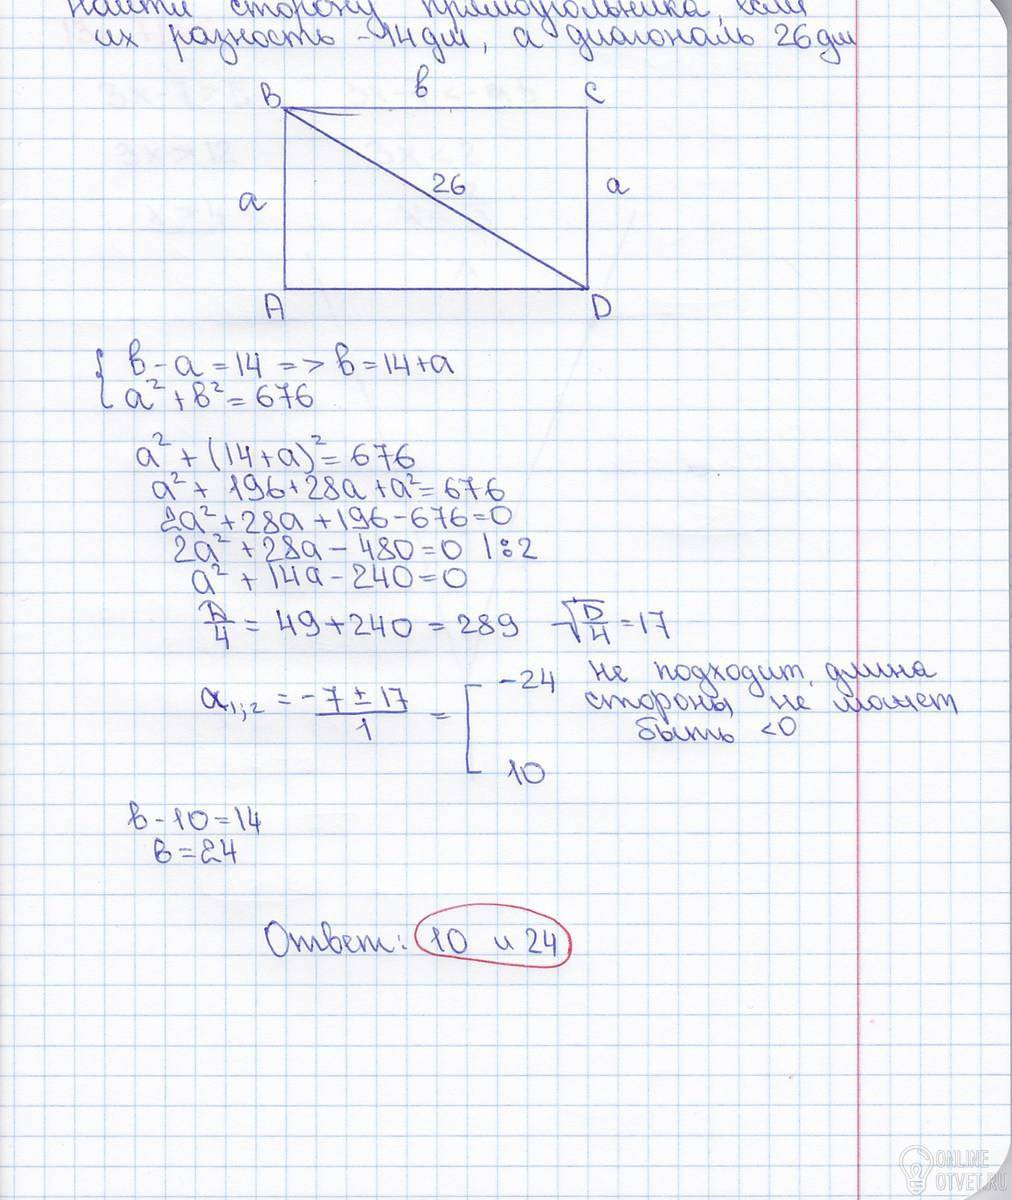 Найти сторону прямоугольника, если
их разность - 14дм, а диагональ 26дм
B в C
26
a a
A D
в - a = 14 => в = 14 + a
a² + в² = 676
a² + (14 + a)² = 676
a² + 196 + 28a + a² = 676
2a² + 28a + 196 - 676 = 0
2a² + 28a - 480 = 0 | : 2
a² + 14a - 240 = 0
D/4 = 49 + 240 = 289 √D/4 = 17
a₁;₂ = -7 ± 17 / 1 = [ -24 не подходит, длина
стороны не может
быть < 0
10
в - 10 = 14
в = 24
Ответ: 10 и 24
ONLINE
OTVET.RU